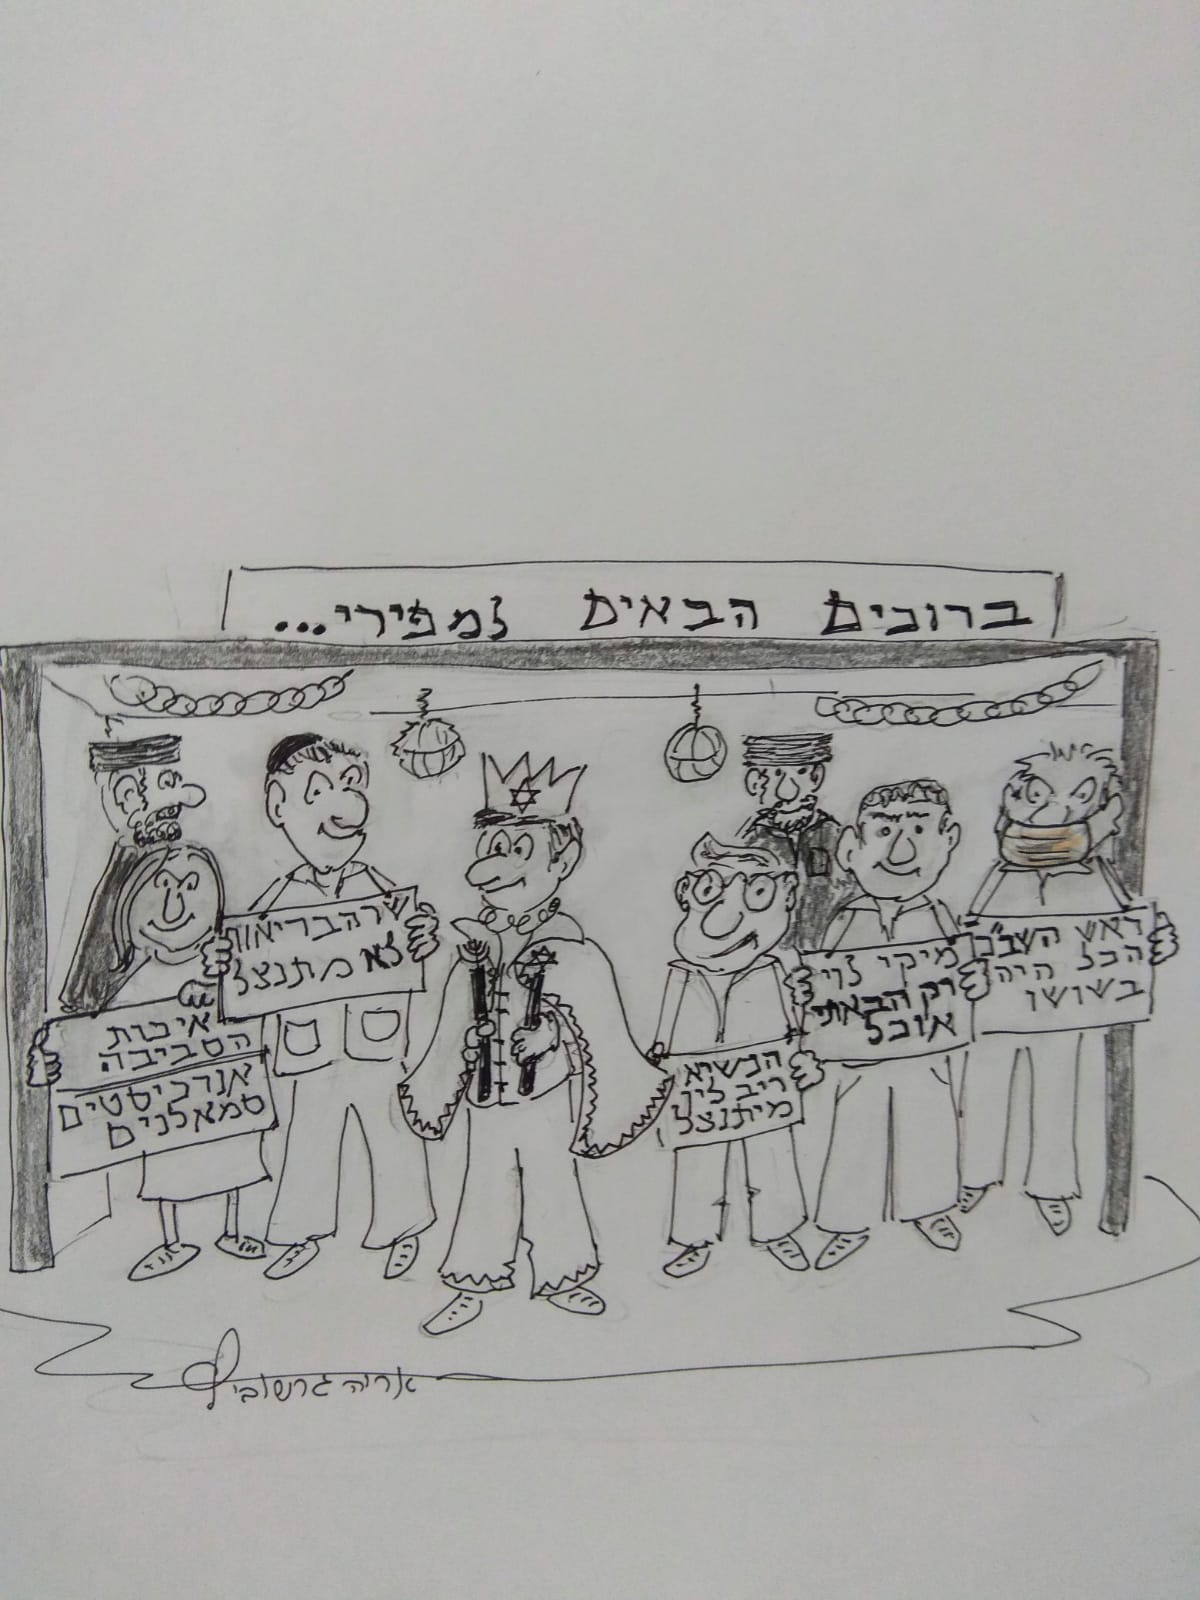 ברוכים הבאים למפירי...
שר הבריאות
לא מתנצל
איכות
הסביבה
אנרכיסטים
סמאלנים
הנשיא
ריב לין
מיתנצל
מיקי לוי
רק הבאתי
אוכל
ראש השב"כ
הכל היה
בשושו
אריה גרשוביץ